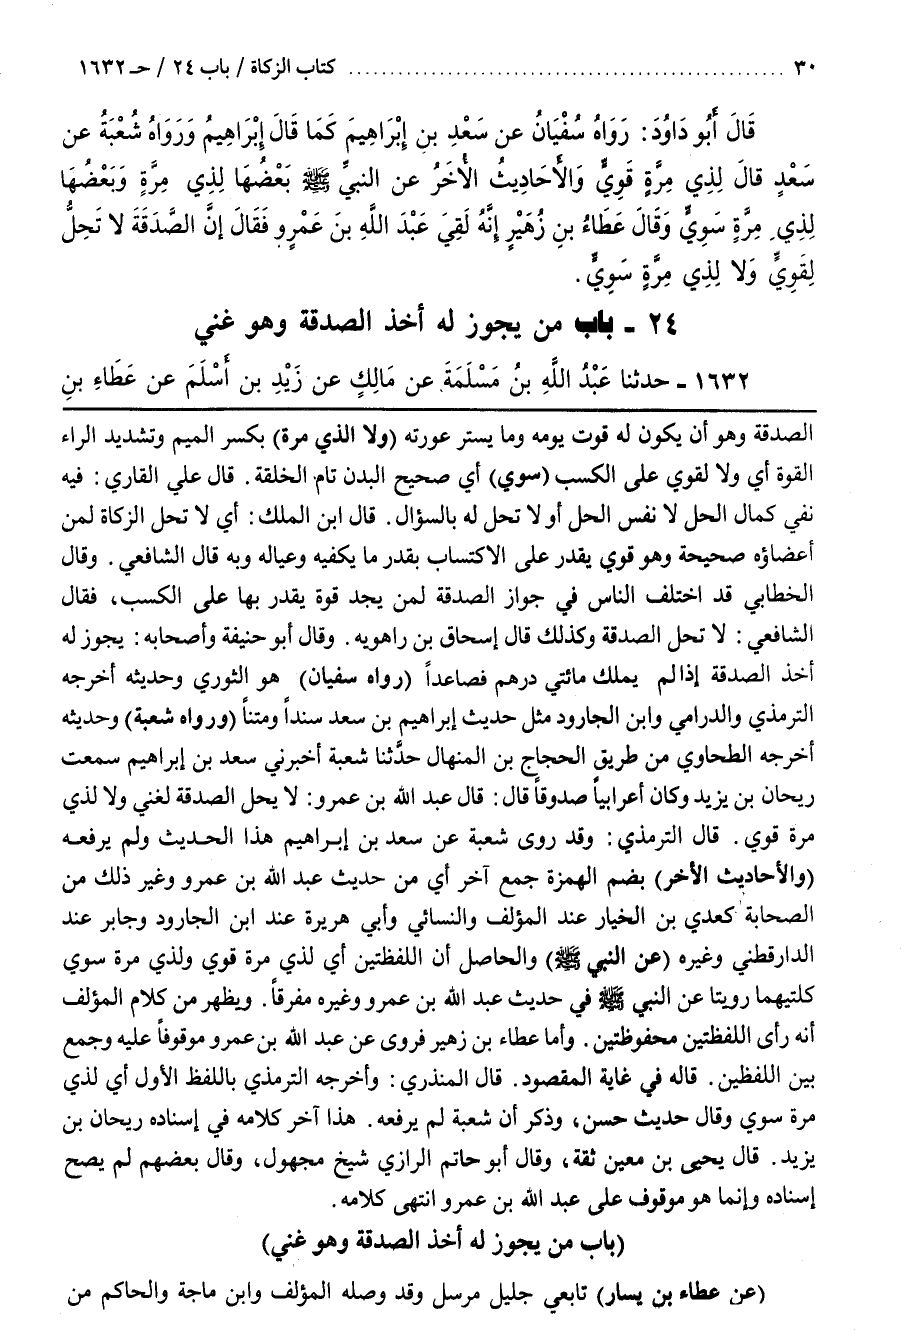 ٣٠ ........................ كتاب الزكاة / باب ٢٤ / حـ ١٦٣٢
قَالَ أَبُو دَاوُدَ: رَوَاهُ سُفْيَانُ عن سَعْدِ بنِ إبْرَاهِيمَ كَمَا قَالَ إبْرَاهِيمُ وَرَوَاهُ شُعْبَةُ عن
سَعْدٍ قالَ لِذِي مِرَّةٍ قَوِيٍّ وَالأَحَادِيثُ الأُخَرُ عن النبيِّ ﷺ بَعْضُهَا لِذِي مِرَّةٍ وَبَعْضُهَا
لِذِي مِرَّةٍ سَوِيٍّ وَقَالَ عَطَاءُ بنِ زُهَيْرٍ إنَّهُ لَقِيَ عَبْدَ اللَّهِ بنَ عَمْرٍو فَقَالَ إنَّ الصَّدَقَةَ لا تَحِلُّ
لِقَوِيٍّ وَلا لِذِي مِرَّةٍ سَوِيٍّ.
٢٤ - باب من يجوز له أخذ الصدقة وهو غني
١٦٣٢ - حدثنا عَبْدُ اللَّهِ بنُ مَسْلَمَةَ عن مَالِكٍ عن زَيْدِ بن أَسْلَمَ عن عَطَاءِ بنِ
الصدقة وهو أن يكون له قوت يومه وما يستر عورته (ولا الذي مرة) بكسر الميم وتشديد الراء
القوة أي ولا لقوي على الكسب (سوي) أي صحيح البدن تام الخلقة. قال علي القاري: فيه
نفي كمال الحل لا نفس الحل أو لا تحل له بالسؤال. قال ابن الملك: أي لا تحل الزكاة لمن
أعضاؤه صحيحة وهو قوي يقدر على الاكتساب بقدر ما يكفيه وعياله وبه قال الشافعي. وقال
الخطابي قد اختلف الناس في جواز الصدقة لمن يجد قوة يقدر بها على الكسب، فقال
الشافعي: لا تحل الصدقة وكذلك قال إسحاق بن راهويه. وقال أبو حنيفة وأصحابه: يجوز له
أخذ الصدقة إذا لم يملك مائتي درهم فصاعداً (رواه سفيان) هو الثوري وحديثه أخرجه
الترمذي والدارمي وابن الجارود مثل حديث إبراهيم بن سعد سنداً ومتناً (ورواه شعبة) وحديثه
أخرجه الطحاوي من طريق الحجاج بن المنهال حدَّثنا شعبة أخبرني سعد بن إبراهيم سمعت
ريحان بن يزيد وكان أعرابياً صدوقاً قال: قال عبد الله بن عمرو: لا يحل الصدقة لغني ولا لذي
مرة قوي. قال الترمذي: وقد روى شعبة عن سعد بن إبراهيم هذا الحديث ولم يرفعه
(والأحاديث الأخر) بضم الهمزة جمع آخر أي من حديث عبد الله بن عمرو وغير ذلك من
الصحابة كعدي بن الخيار عند المؤلف والنسائي وأبي هريرة عند ابن الجارود وجابر عند
الدارقطني وغيره (عن النبي ﷺ) والحاصل أن اللفظتين أي لذي مرة قوي ولذي مرة سوي
كلتيهما رويتا عن النبي ﷺ في حديث عبد الله بن عمرو وغيره مفرقاً. ويظهر من كلام المؤلف
أنه رأى اللفظتين محفوظتين. وأما عطاء بن زهير فروى عن عبد الله بن عمرو موقوفاً عليه وجمع
بين اللفظين. قاله في غاية المقصود. قال المنذري: وأخرجه الترمذي باللفظ الأول أي لذي
مرة سوي وقال حديث حسن، وذكر أن شعبة لم يرفعه. هذا آخر كلامه في إسناده ريحان بن
يزيد. قال يحيى بن معين ثقة، وقال أبو حاتم الرازي شيخ مجهول، وقال بعضهم لم يصح
إسناده وإنما هو موقوف على عبد الله بن عمرو انتهى كلامه.
(باب من يجوز له أخذ الصدقة وهو غني)
(عن عطاء بن يسار) تابعي جليل مرسل وقد وصله المؤلف وابن ماجة والحاكم من